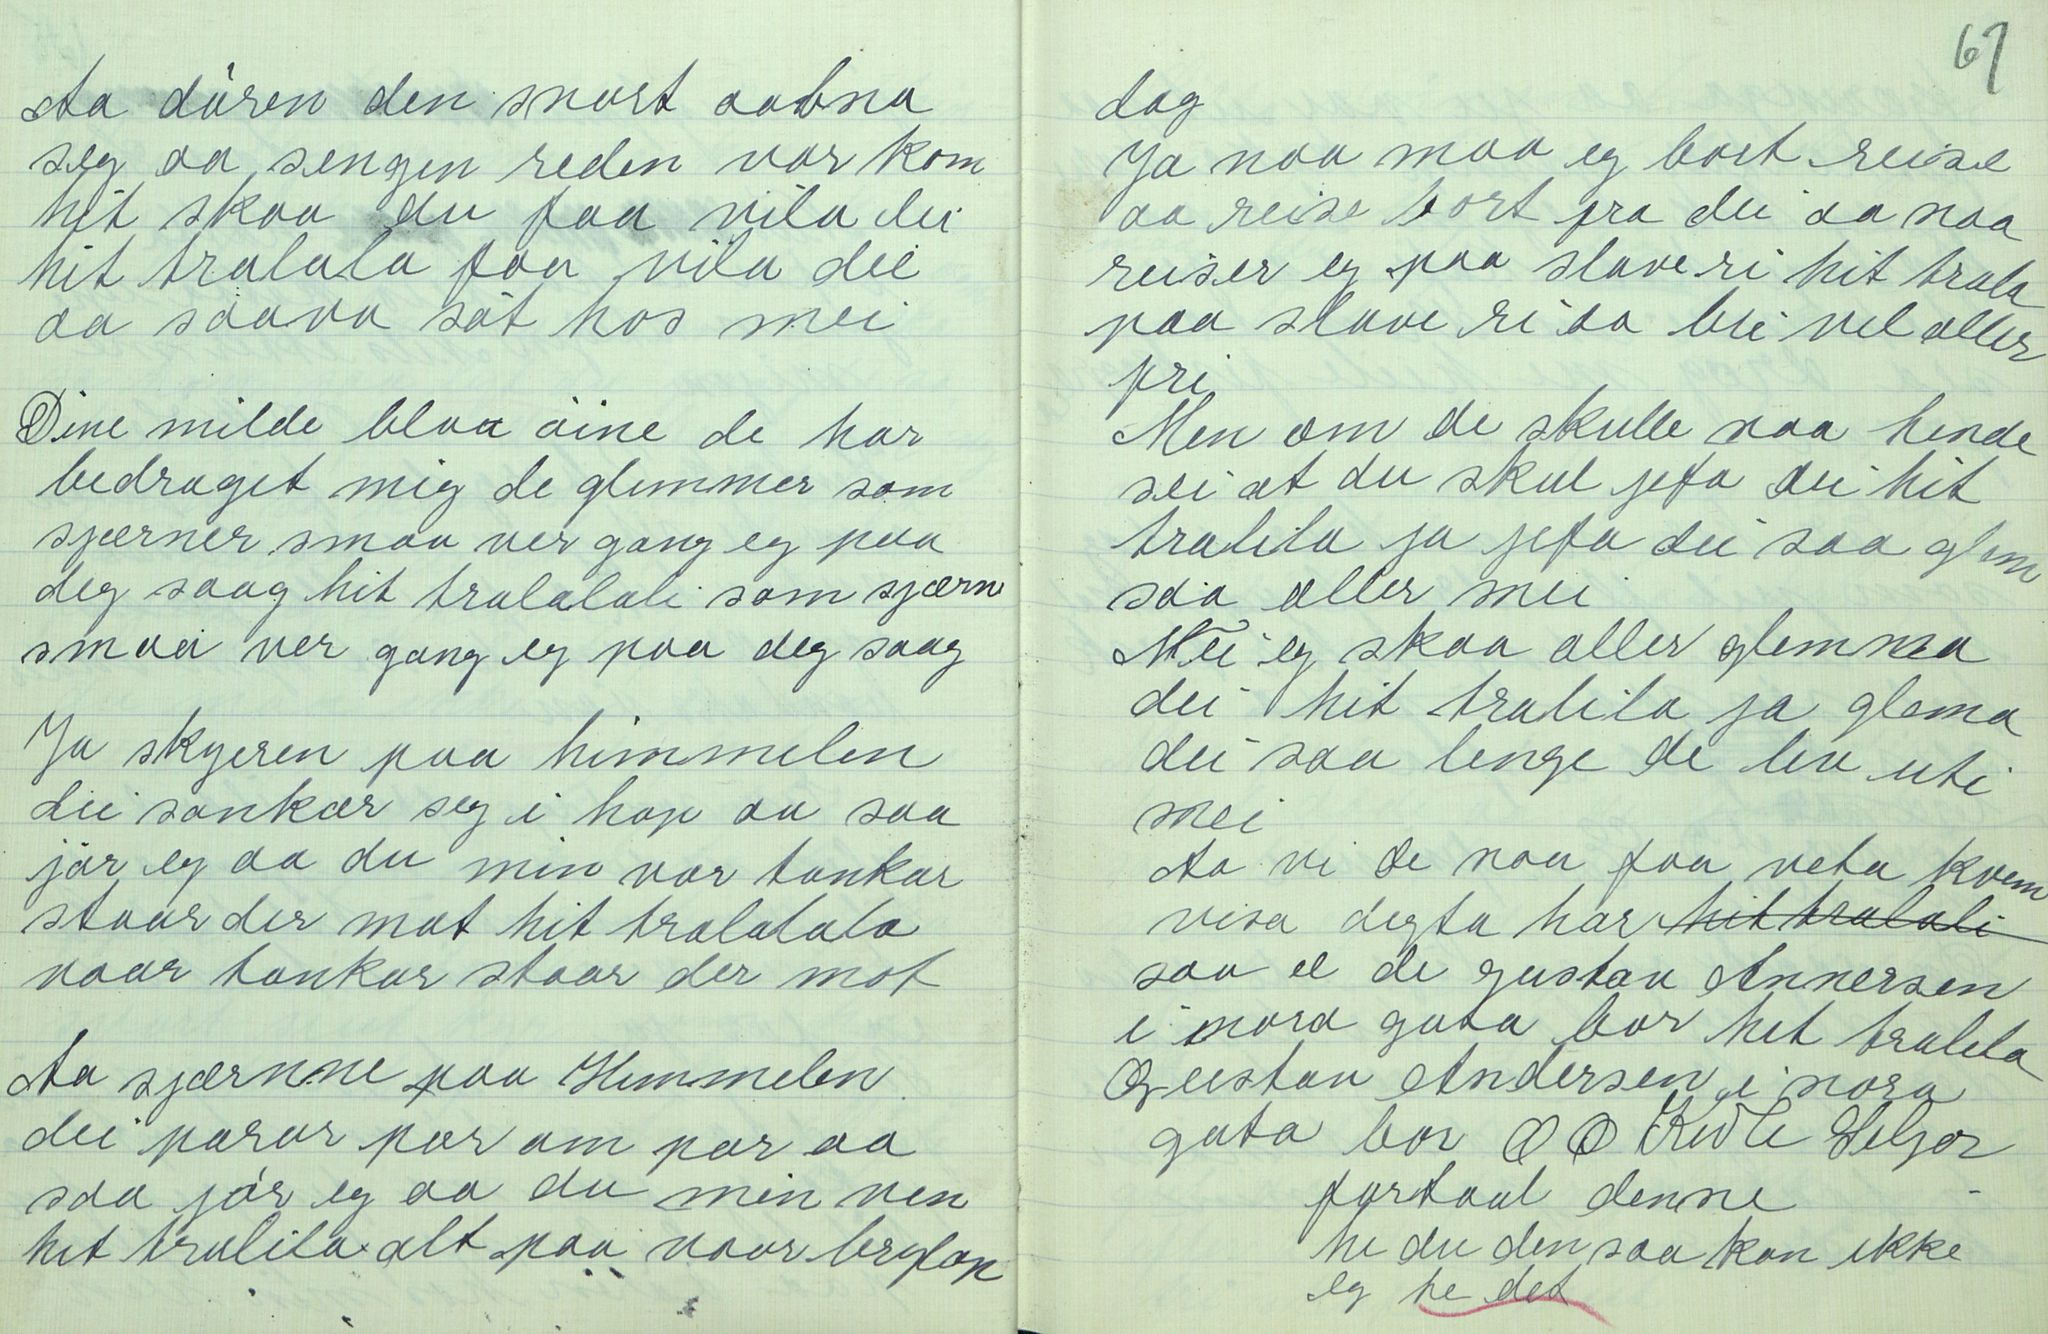 Aa dören den snart aabna
seg aa sengen reden var kom
hit skaa du faa vila dei
hit tralala faa vila dei
aa saava söt hos mei
Dine milde blaa öine de har
bedraget mig de glemmer som
sjærner smaa ver gang eg paa
deg saag hit tralalali som sjærn
smaa ver gang eg paa deg saag
Ja skyeren paa himmelen
dei sankær seg i hop aa saa
jör eg aa du min var tankar
staar der mot hit tralalala
vaar tankar staar der mot
Aa sjærnne paa Himmelen
dei parar par om par aa
saa jör eg aa du min ven
hit tralila alt paa vaar brylop
67
dag
Ja naa maa eg bort reise
aa reise bort fra dei aa naa
reiser eg paa slaveri hit trala
paa slaveri aa blei vel aller
fri
Men om de skulle naa hende
sei at du skul jefta dei hit
tralila ja jefta dei saa glem
saa aller mei
Nei eg skaa aller glemma
dei hit tralila ja glema
dei saa lenge de lev uti
mei
Aa vi de naa faa veta kvem
visa digta har hit tralali
saa el de gustav Annersen
i nora gata bor hit tralila
Gustav Andersen i nora
gata bor Seljor
fortaal denne
he du den saa kan ikke
eg he det